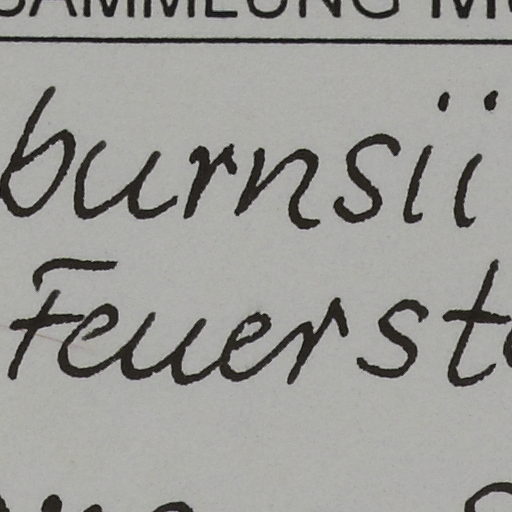 SAMMLUNG
burnsii
Feuerst